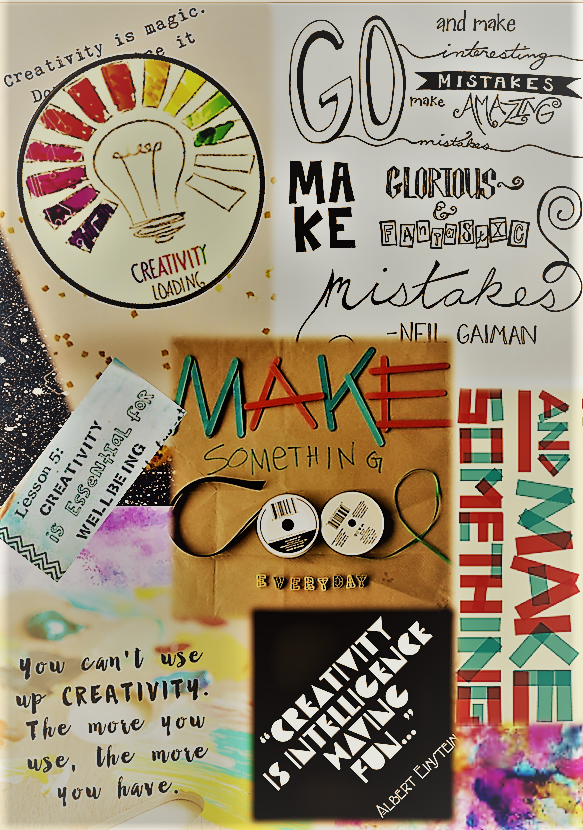 Creativity is magic.
it
CREATIVITY
LOADING
GO
and make
interesting
MISTAKES
make AMAZING
mistakes
MAKE
GLORIOUS
&
FANTASTIC
mistakes
-NEIL GAIMAN
MAKE
SOMETHING
COOL
EVERYDAY
Lesson 5:
CREATIVITY
is ESSENTIAL FOR
WELLBEING
AND MAKE
SOMETHING
you can't use
up CREATIVITY.
The more you
use, the more
you have.
"CREATIVITY
IS INTELLIGENCE
HAVING
FUN..."
ALBERT EINSTEIN